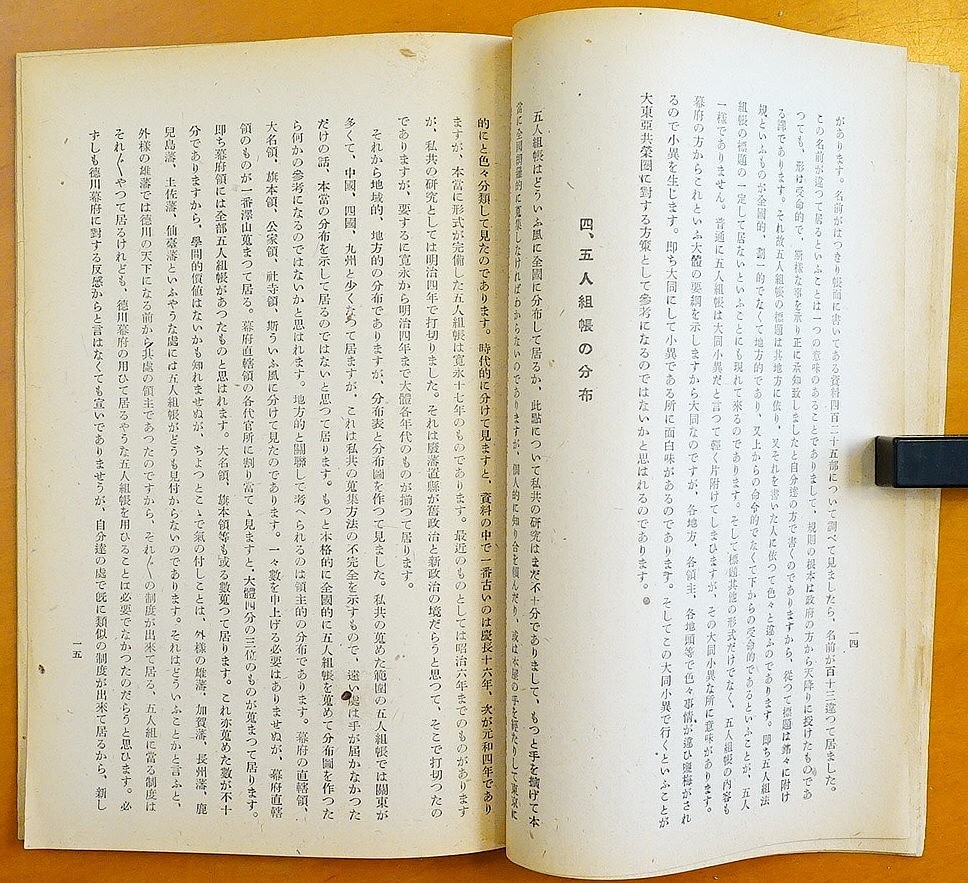 があります。名前がはつきり帳面に書いてある資料四百二十五部について調べて見ましたら、名前が百十三違つて居ました。
この名前が違つて居るといふことは一つの意味のあることでありまして、規則の根本は政府の方から天降りに授けたものであ
つても、形は受命的で、斯様な事を承り正に承知致しましたと自分達の方で書くのでありますから、從つて標題は銘々に附け
る譯であります。それ故五人組帳の標題は其地方に依り、又それを書いた人に依つて色々と違ふのであります。即ち五人組法
規といふものが全國的、劃一的でなくて地方的であり、又上からの命令的でなくて下からの受命的であるといふことが、五人
組帳の標題の一定して居ないといふことにも現れて來るのであります。そして標題其他の形式だけでなく、五人組帳の内容も
一樣でありません。普通に五人組帳は大同小異だと言つて輕く片附けてしまひますが、その大同小異な所に意味があります。
幕府の方からこれといふ大體の要綱を示しますから大同なのですが、各地方、各領主、各地頭等で色々事情が違ひ塩梅がされ
るので小異を生じます。即ち大同にして小異である所に面白味があるのであります。そしてこの大同小異で行くといふことが
大東亞共榮圏に對する方策として參考になるのではないかと思はれるのであります。
四、五人組帳の分布
五人組帳はどういふ風に全國に分布して居るか、此點について私共の研究はまだ不十分でありまして、もつと手を擴げて本
當に全國網羅的に蒐集しなければわからないのでありますが、個人的に知り合を頼んだり、或は本屋の手を經たりして東京に
一四
的にと色々分類して見たのであります。時代的に分けて見ますと、資料の中で一番古いのは慶長十六年、次が元和四年であり
ますが、本當に形式が完備した五人組帳は寛永十七年のものであります。最近のものとしては昭治六年までのものがあります
が、私共の研究としては明治四年で打切りました。それは廢藩置縣が舊政治と新政治の境だらうと思つて、そこで打切つたの
でありますが、要するに寛永から明治四年まで大體各年代のものが揃つて居ります。
それから地域的、地方的の分布でありますが、分布表と分布圖を作つて見ました。私共の蒐めた範圍の五人組帳では關東が
多くて、中國、四國、九州と少くなつて居ますが、これは私共の蒐集方法の不完全を示すもので、遠い處は手が屆かなかつた
だけの話、本當の分布を示して居るのではないと思つて居ります。もつと本格的に全國的に五人組帳を蒐めて分布圖を作つた
ら何かの參考になるのではないかと思はれます。地方的と關聯して考へられるのは領主的の分布であります。幕府の直轄領、
大名領、旗本領、公家領、社寺領、斯ういふ風に分けて見たのであります。一々數を申上げる必要はありませぬが、幕府直轄
領のものが一番澤山蒐まつて居る。幕府直轄領の各代官所に割り當てゝ見ますと、大體四分の三位のものが蒐まつて居ります。
即ち幕府領には全部五人組帳があつたものと思はれます。大名領、旗本領等も或る數蒐つて居ります。これ亦蒐めた數が不十
分でありますから、學問的價値はないかも知れませぬが、ちよつとこゝで氣の付しことは、外樣の雄藩、加賀藩、長州藩、鹿
兒島藩、土佐藩、仙臺藩といふやうな處には五人組帳がどうも見付からないのであります。それはどういふことかと言ふと、
外樣の雄藩では德川の天下になる前から其處の領主であつたのですから、それ〲の制度が出來て居る、五人組に當る制度は
それ〲やつて居るけれども、德川幕府の用ひて居るやうな五人組帳を用ひることは必要でなかつたのだらうと思ひます。必
ずしも德川幕府に對する反感からと言はなくても宜いでありませうが、自分達の處で既に類似の制度が出來て居るから、新し
一五